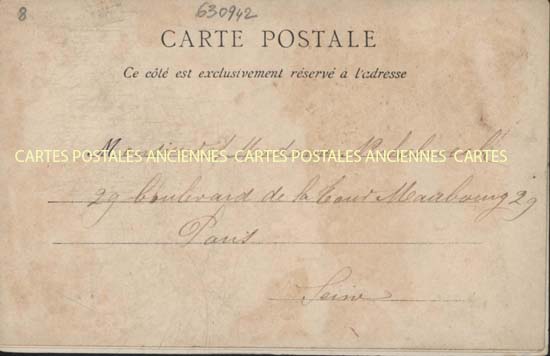 8
630942
CARTE POSTALE
Ce côté est exclusivement réservé à l'adresse
CARTES POSTALES ANCIENNES CARTES POSTALES ANCIENNES CARTES
29 boulevard de la Tour Maubourg 29
Paris
Seine